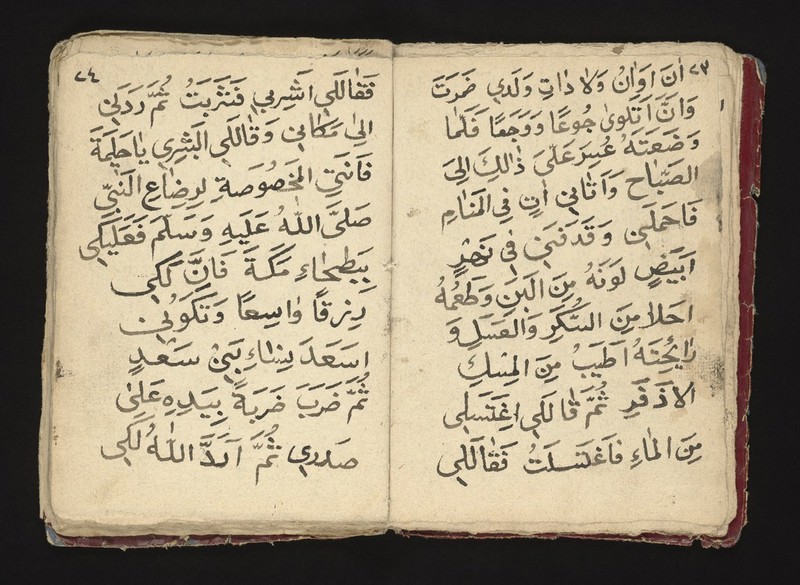 ٢٣
اٰنَ اَوَاٰنُ وَلاٰ دٰاتِ وَلَدِي ضَرَتَ
وَاَنَّ اَتَلَوىٰ جُوعًا وَوَجَعًا فَلَمٰا
وَضَعَتَهُ عُبِرَ عَلَىَّ ذٰالِكَ اِلىَ
الصَبٰاح وَاَتٰانىِ اٰتٍ فِي المَنٰامِ
فَاحمَلَنِى وَقَدَفَنِى فِي نَهرٍ
اَبيَضٍ لَونَهُ مِنَ البَنِ وَطَعمُهُ
احَلاٰ مِنَ السُكَرِ وَالعَسَلِ وَ
رٰايُحِتَهُ اَطيَبُ مِنَ المِسكِ
الاَذفَرِ ثُمَّ قٰالَكِي اِغِتَسَلِى
مِنَ المٰاءِ فٰاَغتَسَلتُ فَقٰالَلِي
٢٤
فَقٰالَكِي اَشرِبي فَشَرَبَتُ ثُمَّ رَدَنِى
الىٰ مَكٰانىِ وَقٰالَكِي البَشرِي يٰاحَلِيمَةَ
فَانَتِى المَخصُوصَةِ لِرِضٰاعِ النَبِّى
صَلىَّ اللّٰهُ عَلَيهِ وَسَلّمَ فَعَلَيكِى
بِبَطِحٰاءِ مَكَةَ فَاِنَّ لَكِى
رِزقًا وٰاسِعًا وَتَكَوُنىِ
اسَعَدَ نِسٰاءِ بَنىِ سَعَدٍ
ثُمَّ ضَرَبَ ضَربَةً بِيَدِهِ عَلىٰ
صَدرِي ثُمَّ اَرَدَّ اللّٰهُ لَكِي